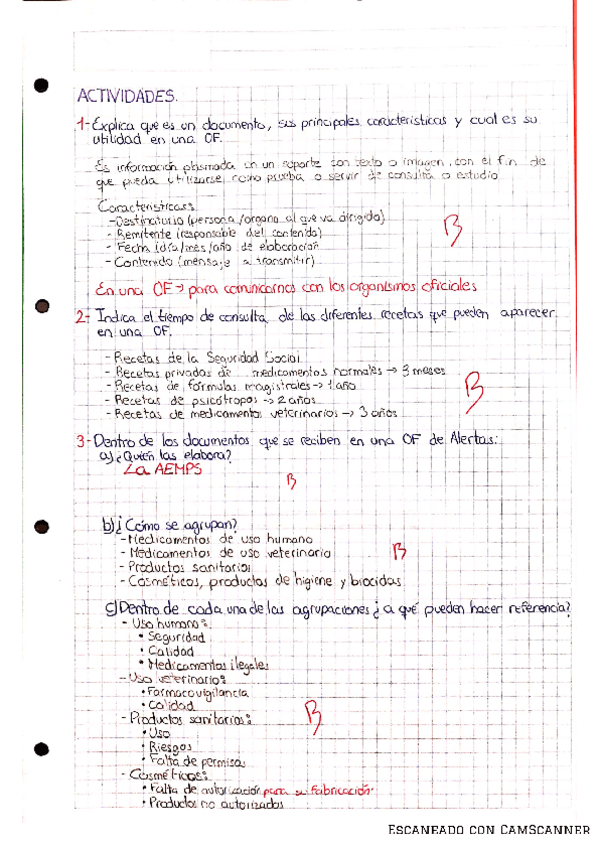 ACTIVIDADES.
1- Explica que es un documento, sus principales caracteristicas y cual es su
utilidad en una OF.
Es información plasmada en un soporte con texto o imagen, con el fin de
que pueda utilizarse como prueba o servir de consulta o estudio
Características:
- Destinatario (persona/organo al que va dirigido)
- Remitente (responsable del contenido)
- Fecha (día/mes/año de elaboración
- Contenido (mensaje a transmitir)
B
En una OF → para comunicarnos con los organismos oficiales
2- Indica el tiempo de consulta de las diferentes recetas que pueden aparecer
en una OF.
- Recetas de la Seguridad Social
- Recetas privadas de medicamentos normales → 3 meses
- Recetas de fórmulas magistrales → 1 año
- Recetas de psicótropos → 2 años
- Recetas de medicamentos veterinarios → 3 años
B
3- Dentro de los documentos que se reciben en una OF de Alertas:
a) ¿Quién las elabora?
La AEMPS
B
b) ¿Cómo se agrupan?
- Medicamentos de uso humano
- Medicamentos de uso veterinario
- Productos sanitarios
- Cosméticos, productos de higiene y biocidas
B
c) Dentro de cada una de las agrupaciones ¿a qué pueden hacer referencia?
- Uso humano:
• Seguridad
• Calidad
• Medicamentos ilegales
- Uso veterinario:
• Farmacovigilancia
• Calidad
- Productos sanitarios:
• Uso
• Riesgos
• Falta de permisos
B
- Cosméticos:
• Falta de autorización para su fabricación
• Productos no autorizados
ESCANEADO CON CAMSCANNER